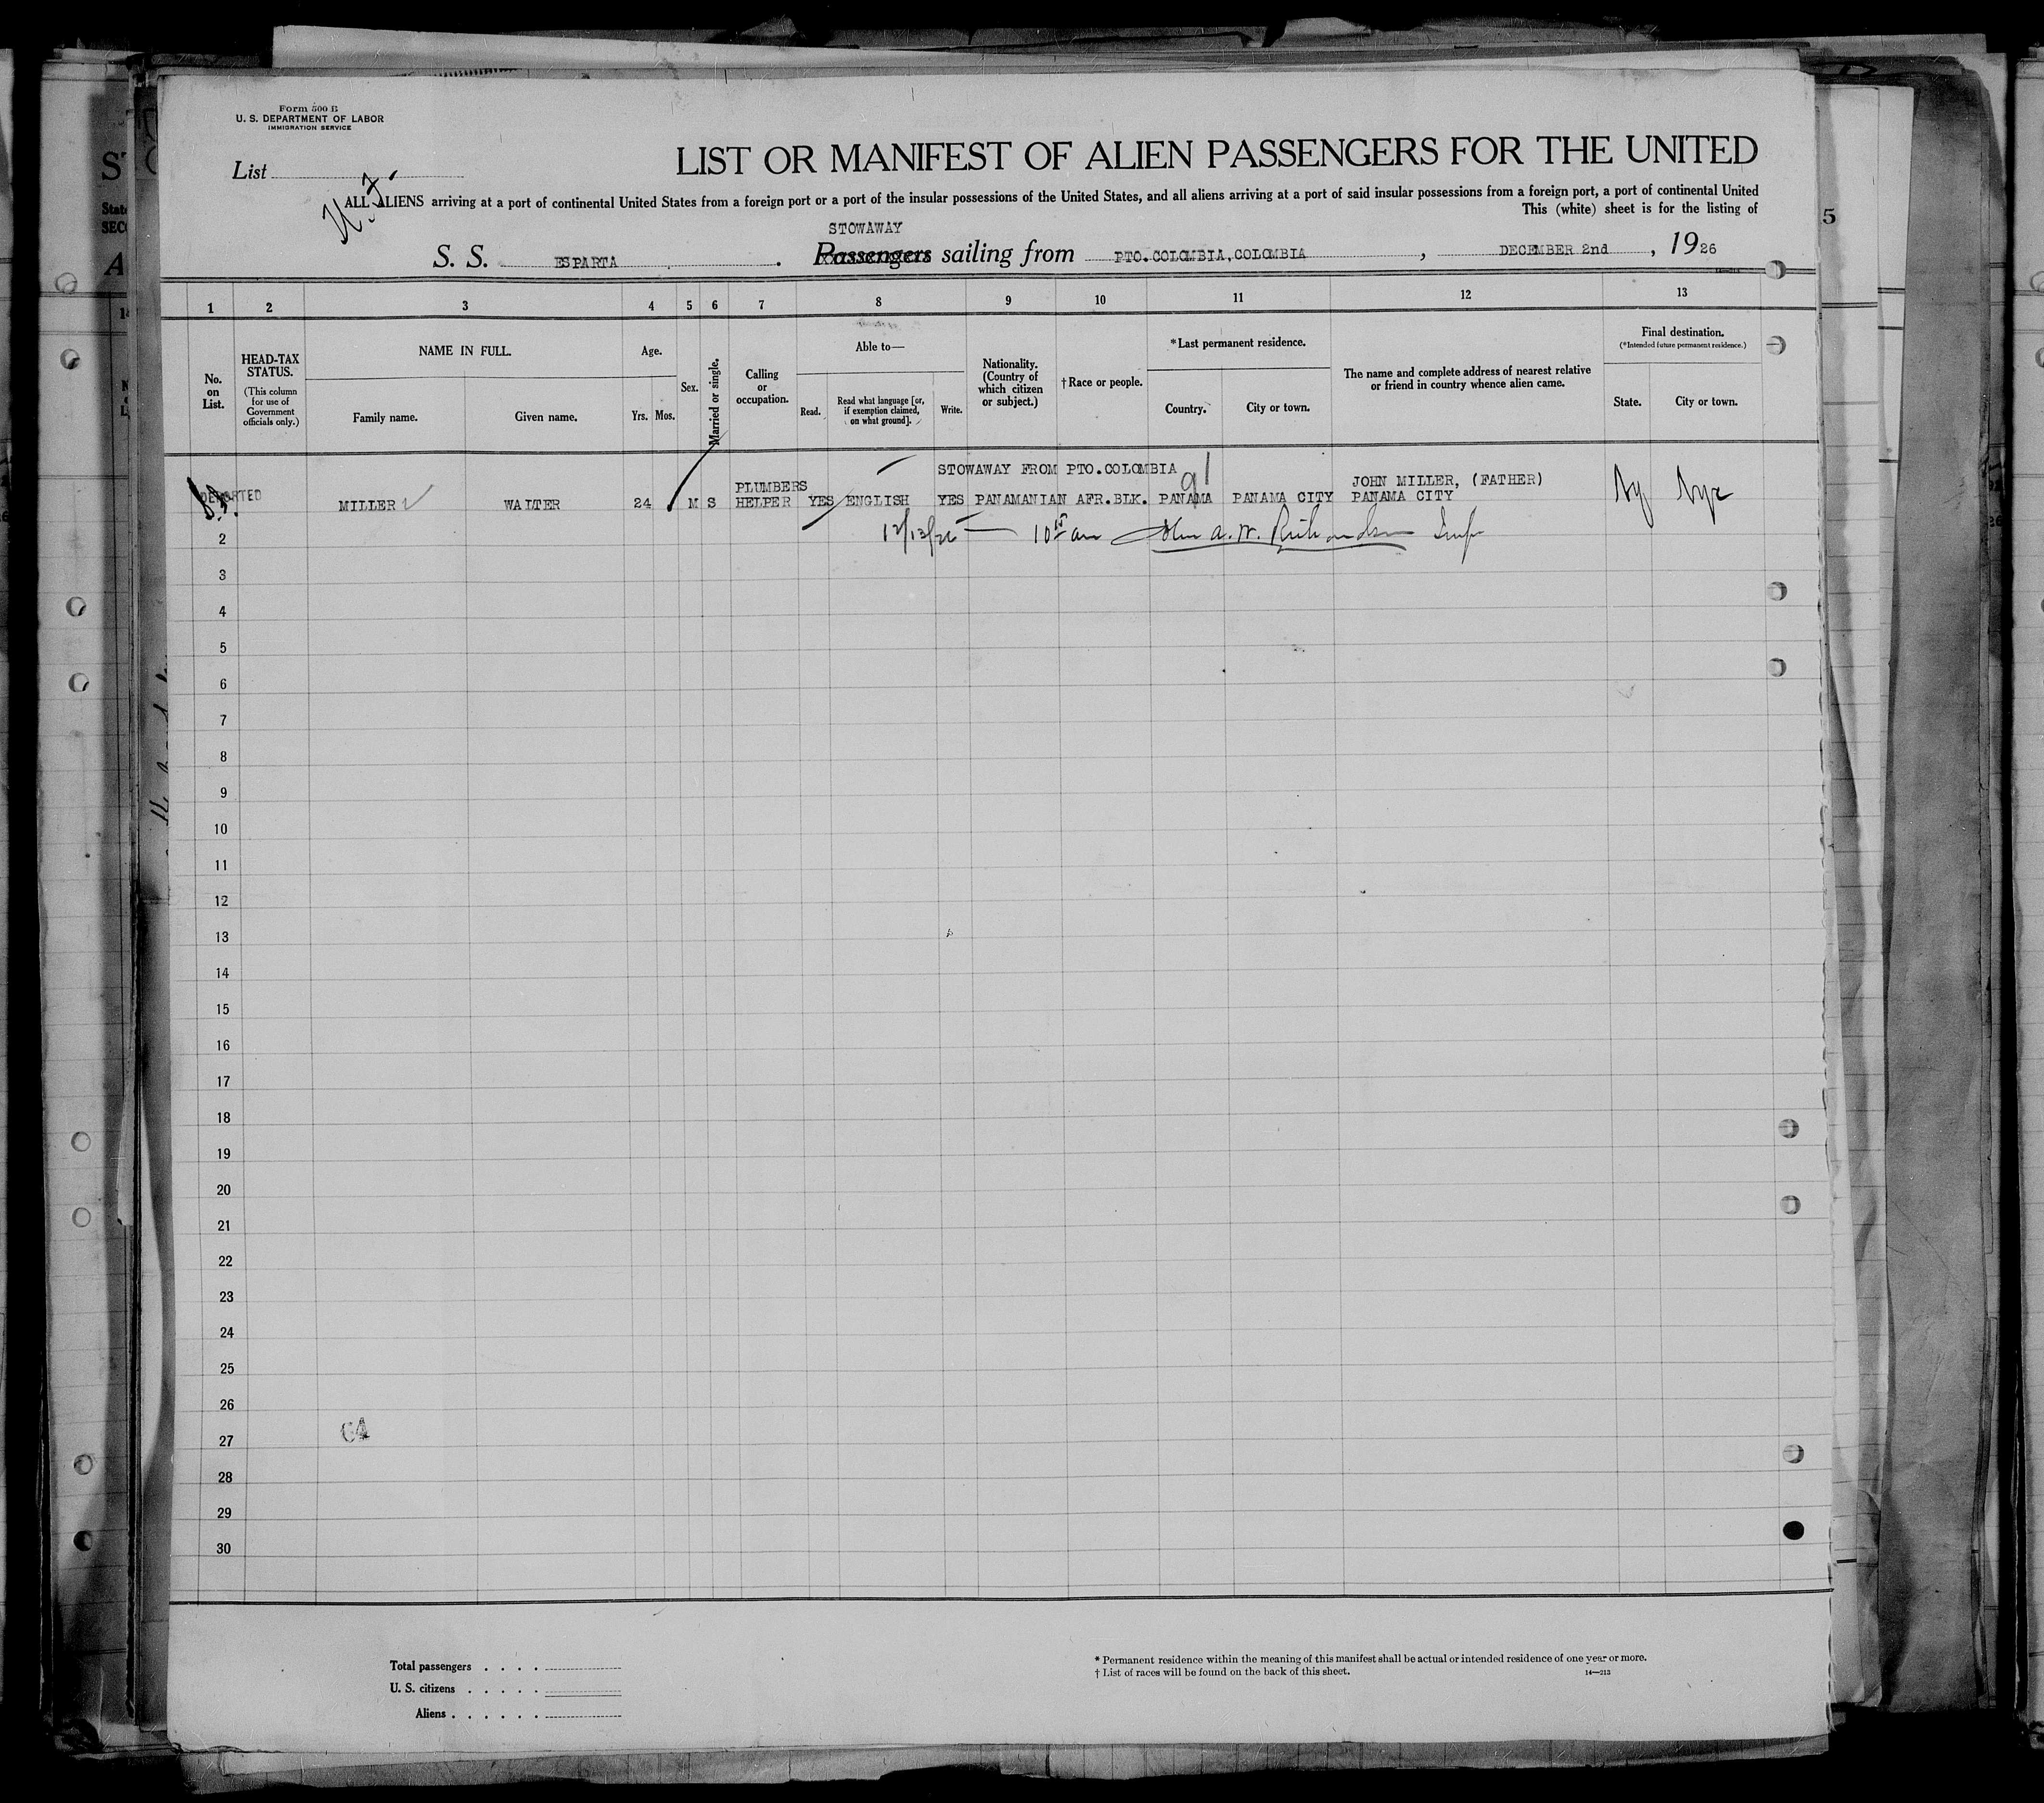 Form 500 B
U. S. DEPARTMENT OF LABOR
IMMIGRATION SERVICE
List
LIST OR MANIFEST OF ALIEN PASSENGERS FOR THE UNITED
ALL ALIENS arriving at a port of continental United States from a foreign port or a port of the insular possessions of the United States, and all aliens arriving at a port of said insular possessions from a foreign port, a port of continental United
This (white) sheet is for the listing of
STOWAWAY
S. S. ESPARTA . Passengers sailing from PTO.COLOMBIA,COLOMBIA , DECEMBER 2nd , 1926
1 2 3 4 5 6 7 8 9 10 11 12 13
No. on List.
HEAD-TAX STATUS.
(This column for use of Government officials only.)
NAME IN FULL.
Family name. Given name.
Age.
Yrs. Mos.
Sex.
Married or single.
Calling or occupation.
Able to—
Read.
Read what language [or, if exemption claimed, on what ground].
Write.
Nationality. (Country of which citizen or subject.)
† Race or people.
*Last permanent residence.
Country. City or town.
The name and complete address of nearest relative or friend in country whence alien came.
Final destination.
(*Intended future permanent residence.)
State. City or town.
STOWAWAY FROM PTO.COLOMBIA
DEPORTED MILLER WALTER 24 M S PLUMBERS HELPER YES ENGLISH YES PANAMANIAN AFR.BLK. PANAMA PANAMA CITY JOHN MILLER, (FATHER) PANAMA CITY Ny Nyc
12/13/26 — 10 am John A. W. Richardson Insp
2
3
4
5
6
7
8
9
10
11
12
13
14
15
16
17
18
19
20
21
22
23
24
25
26
27
64
28
29
30
Total passengers . . . .
U. S. citizens . . . . .
Aliens . . . . . .
* Permanent residence within the meaning of this manifest shall be actual or intended residence of one year or more.
† List of races will be found on the back of this sheet.
14—213
5